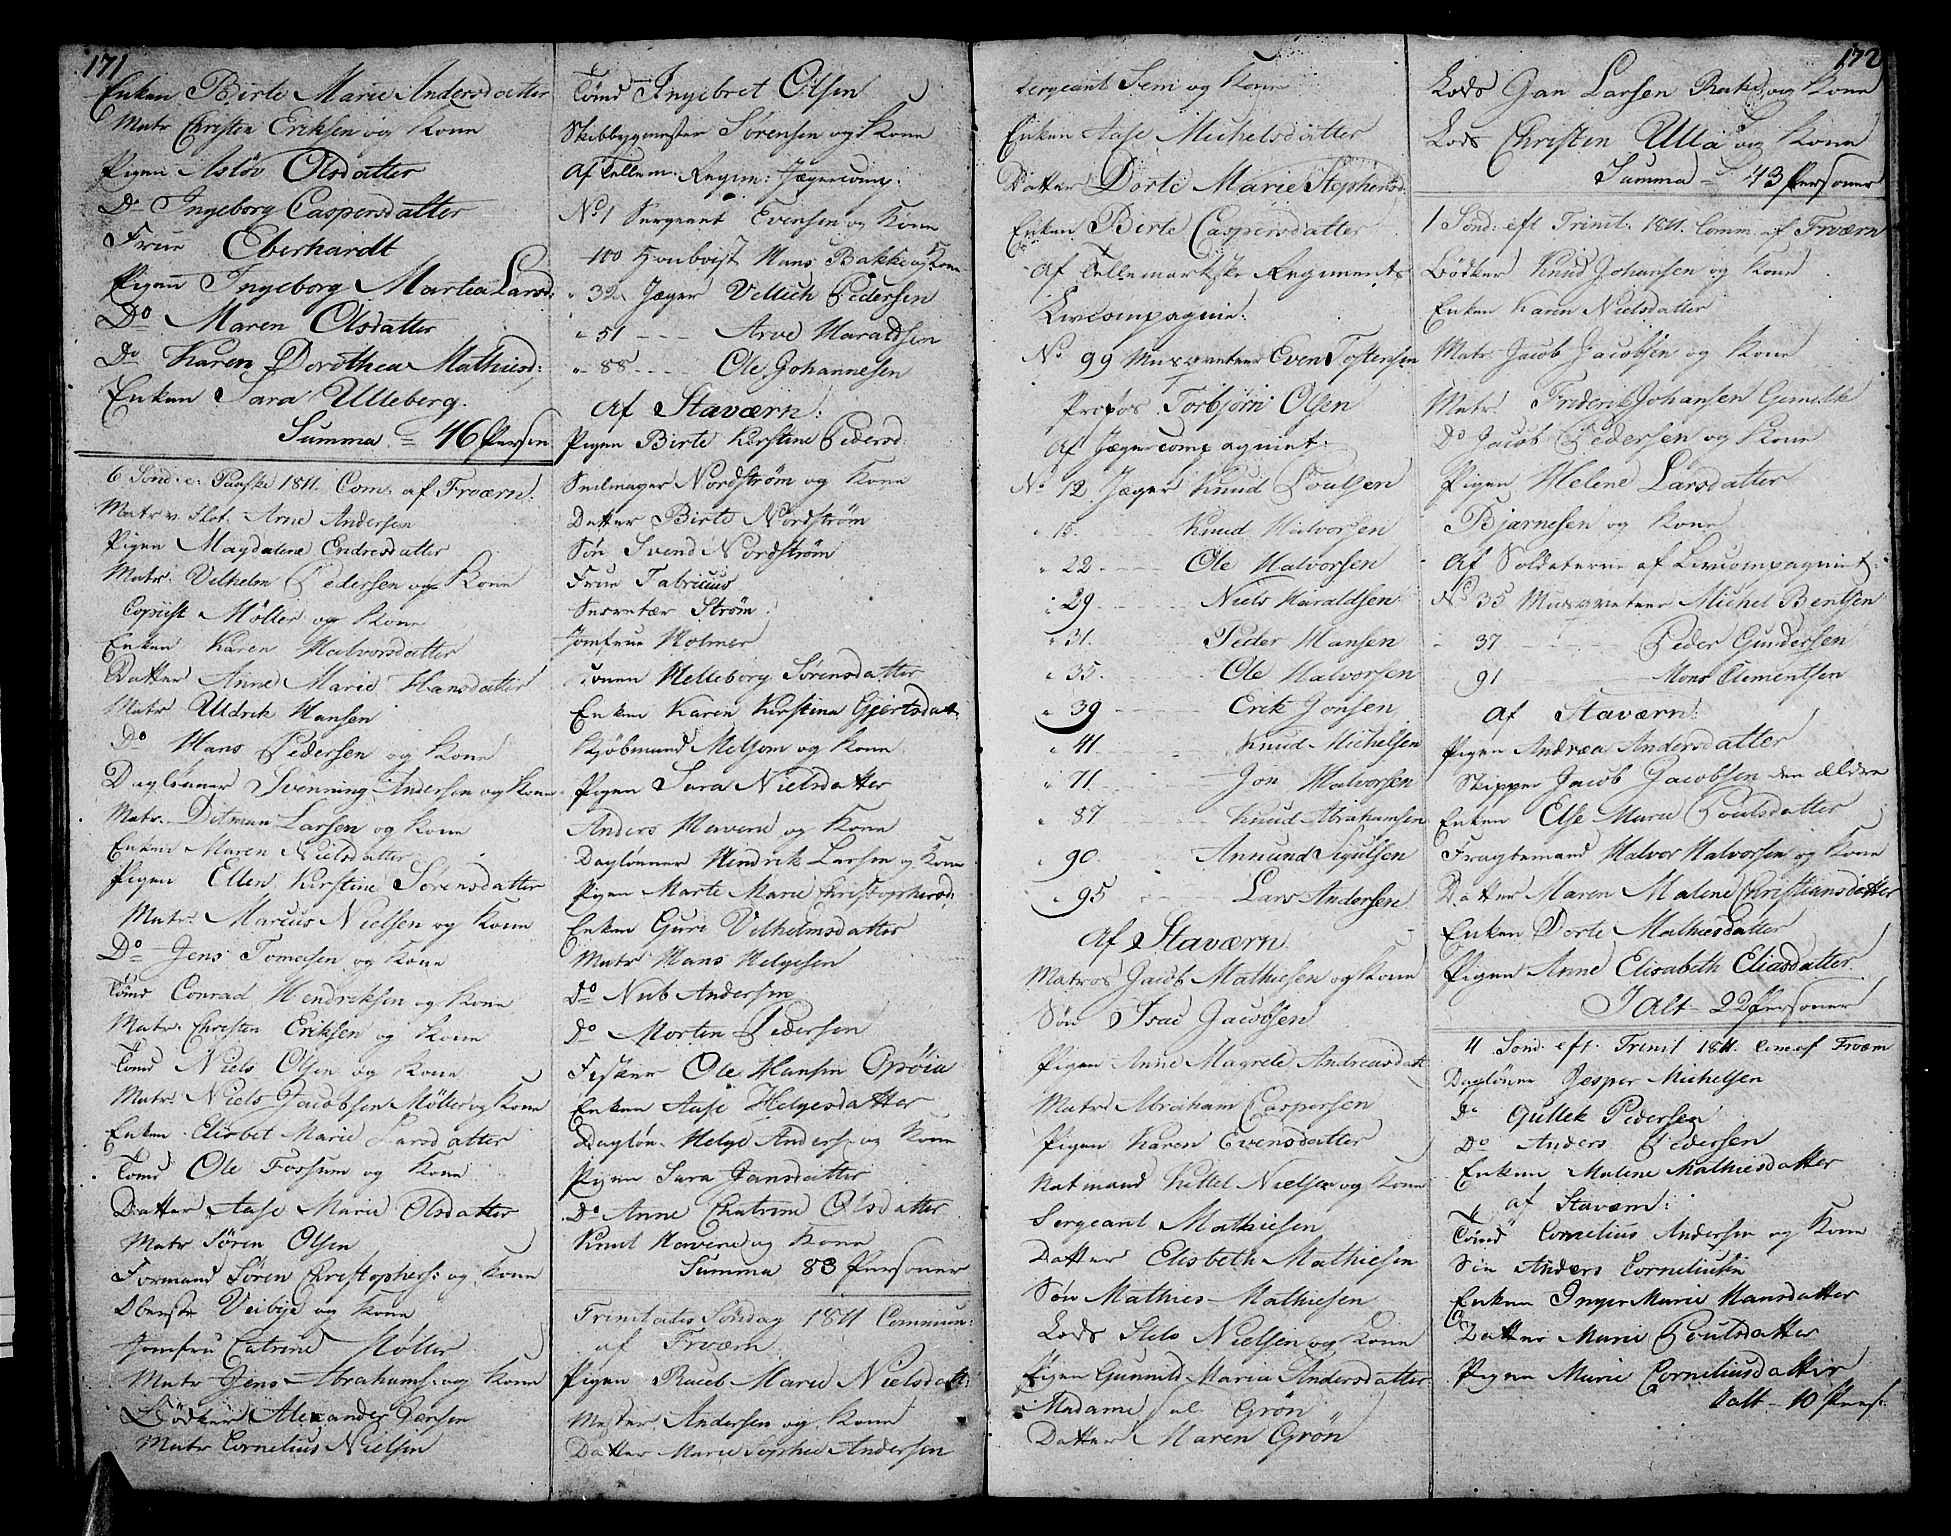 171
Enken Birte Marie Andersdatter
Matr Christen Eriksen og Kone
Pigen Aslöv Olsdatter
Do Ingeborg Caspersdatter
Frue Eberhardt
Pigen Ingeborg Martea Larsd:
Do Maren Olsdatter
Do Karen Dorothea Mathiesd:
Enken Sara Ulleberg.
Summa = 46 Person
6 Sond: e: Paaske 1811. Com: af Frværn.
Matr v. Flot. Arne Andersen
Pigen Magdalene Endresdatter
Matr. Vilhelm Pedersen og Kone
Copiist Möller og Kone
Enken Karen Halvorsdatter
Datter Anne Marie Hansdatter
Matr Uldrik Hansen
Do Hans Pedersen og Kone
Daglönner Svenning Andersen og Kone
Matr. Ditman Larsen og Kone
Enken Maren Nielsdatter
Pigen Ellen Kirstine Sørensdatter
Matr. Marcus Nielsen og Kone
Do Jens Tomesen og Kone
Tömd Conrad Hendriksen og Kone
Matr. Christen Eriksen og Kone
Tömd Niels Olsen og Kone
Matr. Niels Jacobsen Möller og Kone
Enken Elisbet Marie Larsdatter
Tömd Ole Fossum og Kone
Datter Aase Marie Olsdatter
Matr Sören Olsen
Formand Sören Christophers: og Kone
Oberste Veibye og Kone
Jomfru Catrine Möller
Matr Jens Abrahams: og Kone
Bödker Alexander Jensen
Matr Cornelius Nielsen
Tömd Ingebret Olsen
Skibbygmester Sörensen og Kone
Af Tellem: Regim: Jægercomp:
No 1 Sergeant Evensen og Kone
100 Hans Bakke og Kone
" 32 Jæger Vellich Pedersen
" 51 - - - Arve Haraldsen
" 88 - - - Ole Johannesen
Af Staværn:
Pigen Birte Kirstine Pedersd.
Seilmager Nordström og Kone
Datter Birte Nordström
Sön Svend Nordström
Frue Fabricius
Secretær Ström
Jomfrue Holmer
Konen Helleborg Sörensdatter
Enken Karen Kirstine Gjertsdat.
Kjöbmand Melsom og Kone
Pigen Sara Nielsdatter
Anders Havene og Kone
Daglönner Hendrik Larsen og Kone
Pigen Marte Marie Christophersd:
Enken Guri Vilhelmsdatter
Matr Hans Helgesen
Do Nub Andersen
Do Morten Pedersen
Fisker Ole Hansen Opöia
Enken Aase Helgesdatter
Daglön. Helge Anders: og Kone
Pigen Sara Jansdatter
Do Anne Catrine Olsdatter
Knut Havene og Kone
Summa 83 Personer
Trinitatis Söndag 1811 Commun:
af Frværn.
Pigen Raceb Marie Nielsdatt:
Mester Andersen og Kone
Datter Marie Sophie Andersen
Sergeant Sem og Kone
Enken Aase Michelsdatter
Datter Dorte Marie Stephensd.
Enken Birte Caspersdatter
Af Tellemarkske Regiments
Livcompagnie:
No 99 Musqveteer Even Tostensen
Profos Torbjörn Olsen
Af Jægercompagniet:
No 12 Jæger Knud Poulsen
" 15. Knud Halvorsen
" 22. - - - Ole Halvorsen
" 29. - - - Niels Haraldsen
" 31. Peder Hansen
" 35. Ole Halvorsen
" 39 - - - Erik Jonsen
" 41. - - - Knud Michelsen
" 71 - - - Jon Halvorsen
" 87 - - - Knud Abrahamsen
" 90. - - - Annund Sigulsen
" 95 - - - Lars Andersen
Af Staværn.
Matros Jacob Mathiesen og Kone
Sön Isac Jacobsen
Pigen Anne Magrete Andreasdatt
Matr Abraham Caspersen
Pigen Karen Evensdatter
Natmand Kittel Nielsen og Kone
Sergeant Mathiesen
Datter Elisbeth Mathiesen
Sön Mathies Mathiesen
Lods Nielsen og Kone
Pigen Gunnild Maria Andersdatter
Madame sl. Grön
Datter Maren Grön
172
Lods Jan Larsen Rake og Kone
Lods Christen Ulla og Kone
Summa = 43 Personer
1 Sond: eft Trinit: 1811. Comm. af Frværn
Bödker Knud Johansen og Kone
Enken Karen Nielsdatter
Matr. Jacob Jacobsen og Kone
Matr. Friderik Johansen
Do Jacob Pedersen og Kone
Pigen Helene Larsdatter
Bjarnesen og Kone
Af Soldaterne af Livcompagniet:
No 35 Musqveteer Michel Bentsen
- 37 - - - Peder Gundersen
91 - - - Mons Clementsen
Af Staværn:
Pigen Andrea Andersdatter
Skipper Jacob Jacobsen den ældre
Enken Else Marie Poulsdatter
Fragtemand Halvor Halvorsen og Kone
Datter Maren Malene Christiansdatter
Enken Dorte Mathiesdatter
Pigen Anne Elisabeth Eliasdatter.
I Alt - 22 Personer
4 Sond. eft. Trinit 1811. Com. af Frværn
Daglönne Jesper Michelsen
Do Gullek Pedersen
Do Anders Pedersen
Enken Malene Mathiesdatter
af Staværn:
Tömd Cornelius Andersen og Kone
Sön Anders Corneliusen
Enken Inger Marie Hansdatter
Datter Marie Poulsdatter
Pigen Marie Corneliusdatter
Ialt - 10 Pers: